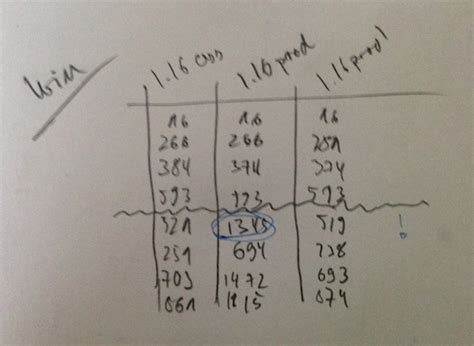 Win
1.16 1.16 prod 1.16 prod
16 16 16
266 266 251
384 374 374
593 593
521 1345 519 !
251 694 238
703 1472 693
661 1815 674